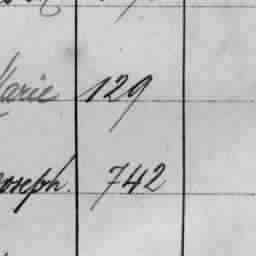 Marie 129
Joseph. 742